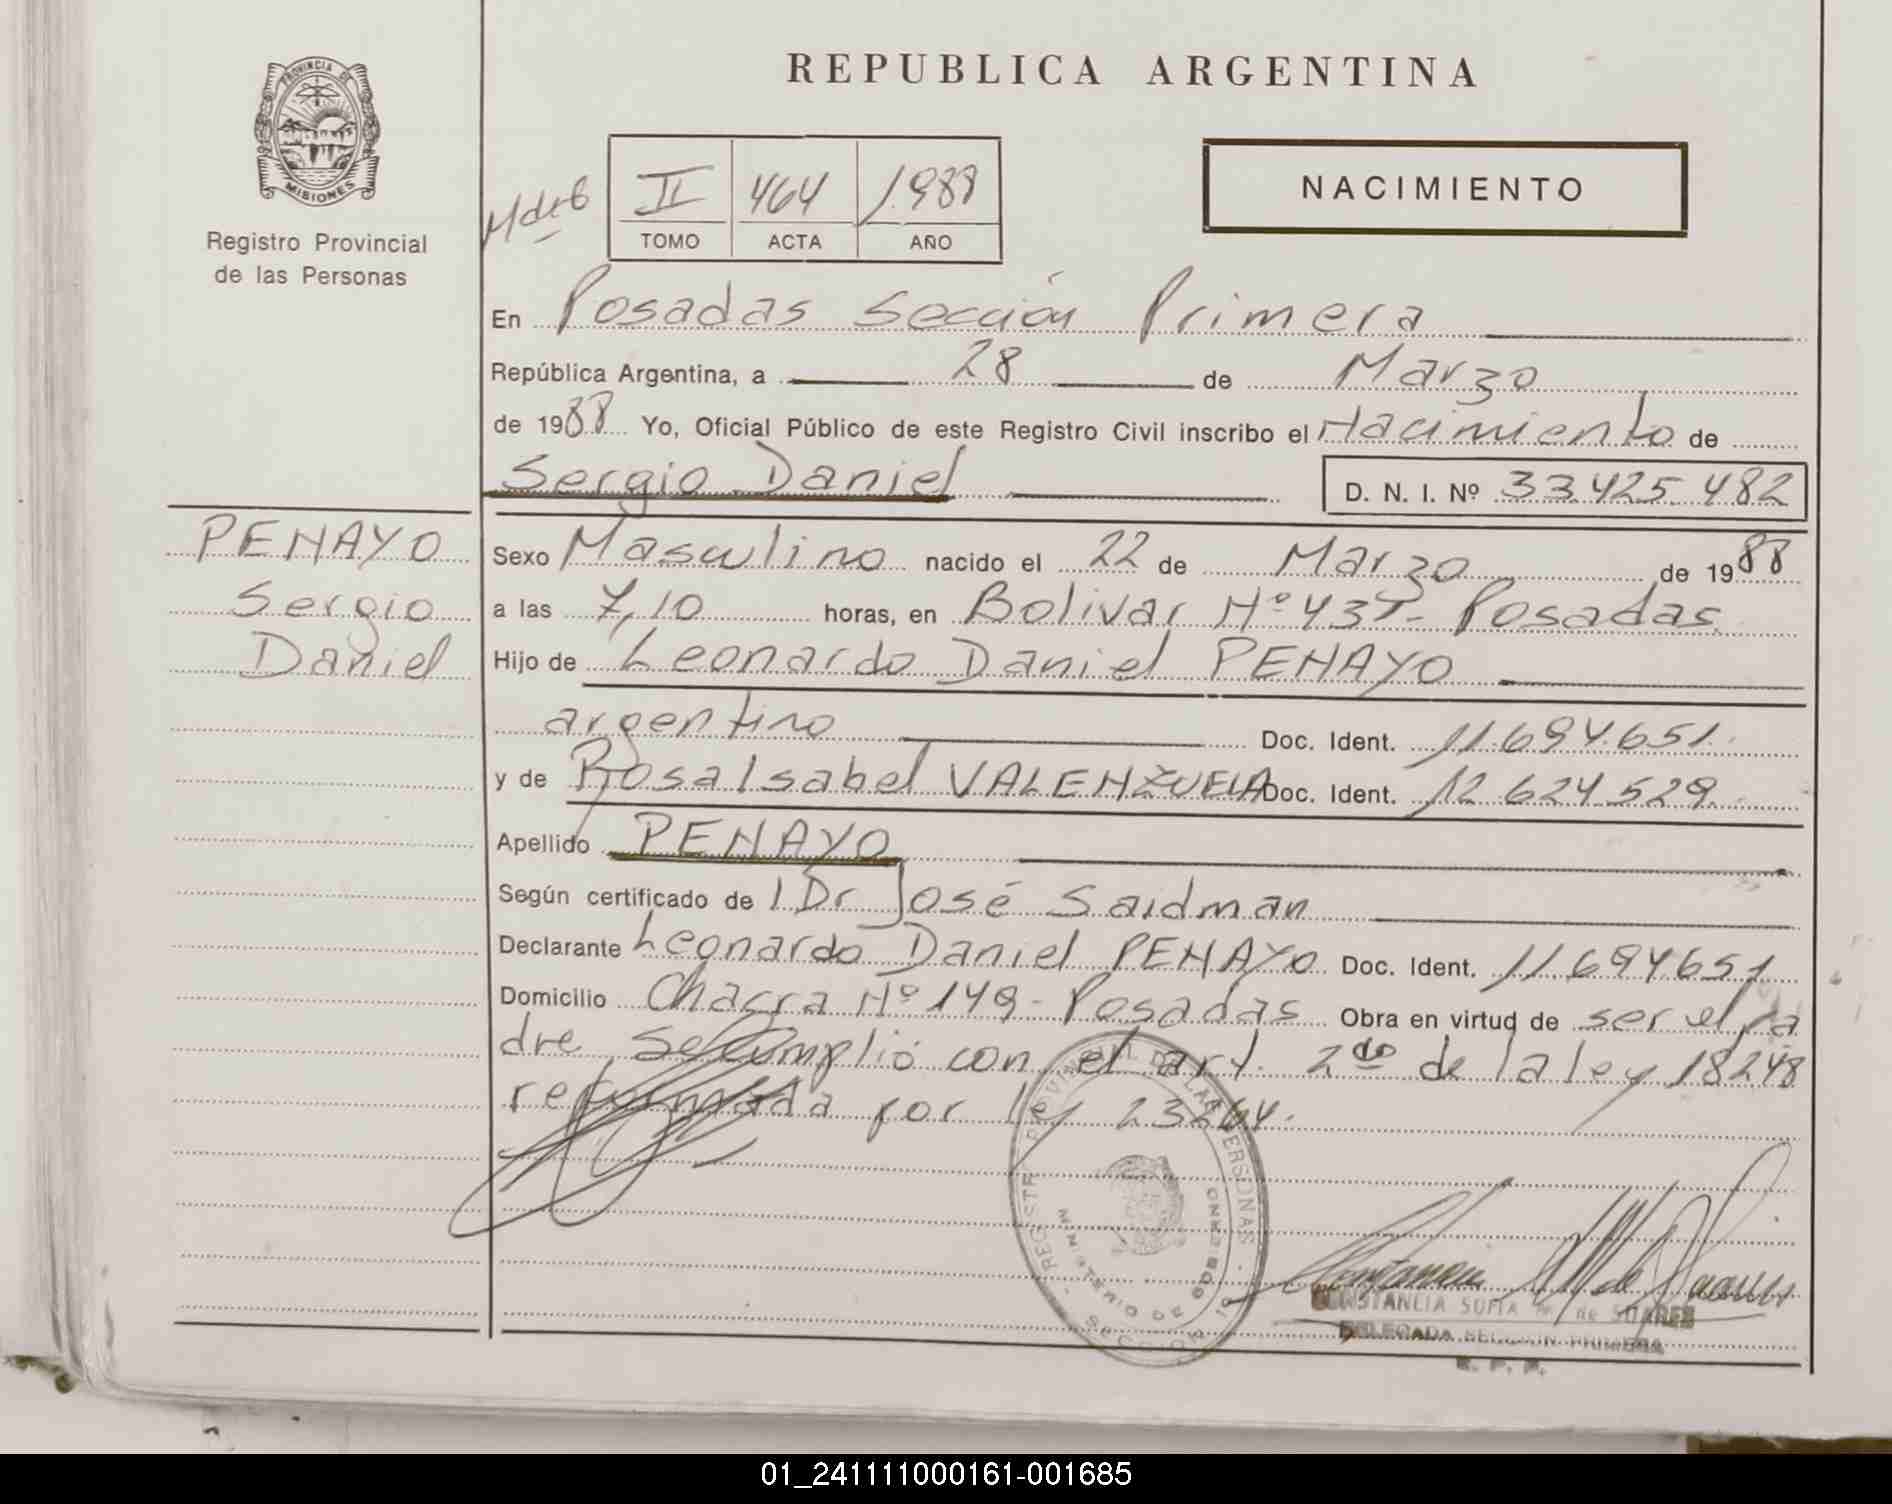 REPUBLICA ARGENTINA
PROVINCIA DE
MISIONES
Registro Provincial
de las Personas
II 464 1.988
TOMO ACTA AÑO
NACIMIENTO
En Posadas Sección Primera
República Argentina, a 28 de Marzo
de 1988 Yo, Oficial Público de este Registro Civil inscribo el Nacimiento de
Sergio Daniel D. N. I. Nº 33.425.482
PENAYO
Sergio
Daniel
Sexo Masculino nacido el 22 de Marzo de 1988
a las 7,10 horas, en Bolivar Nº 437- Posadas
Hijo de Leonardo Daniel PENAYO
argentino Doc. Ident. 11.694.651.
y de Rosa Isabel VALENZUELA Doc. Ident. 12.624.529.
Apellido PENAYO
Según certificado de Dr José Saidman
Declarante Leonardo Daniel PENAYO Doc. Ident. 11694651
Domicilio Chacra Nº 149- Posadas Obra en virtud de ser el pa
dre Se cumplió con el art. 2do de la ley 18248
reformada por ley 23264.
REGISTRO PROVINCIAL DE LAS PERSONAS
MINISTERIO DE GOBIERNO
SECCION 1ª
CONSTANCIA SOFIA de SUAREZ
DELEGADA SECCION PRIMERA
R. P. P.
01_241111000161-001685